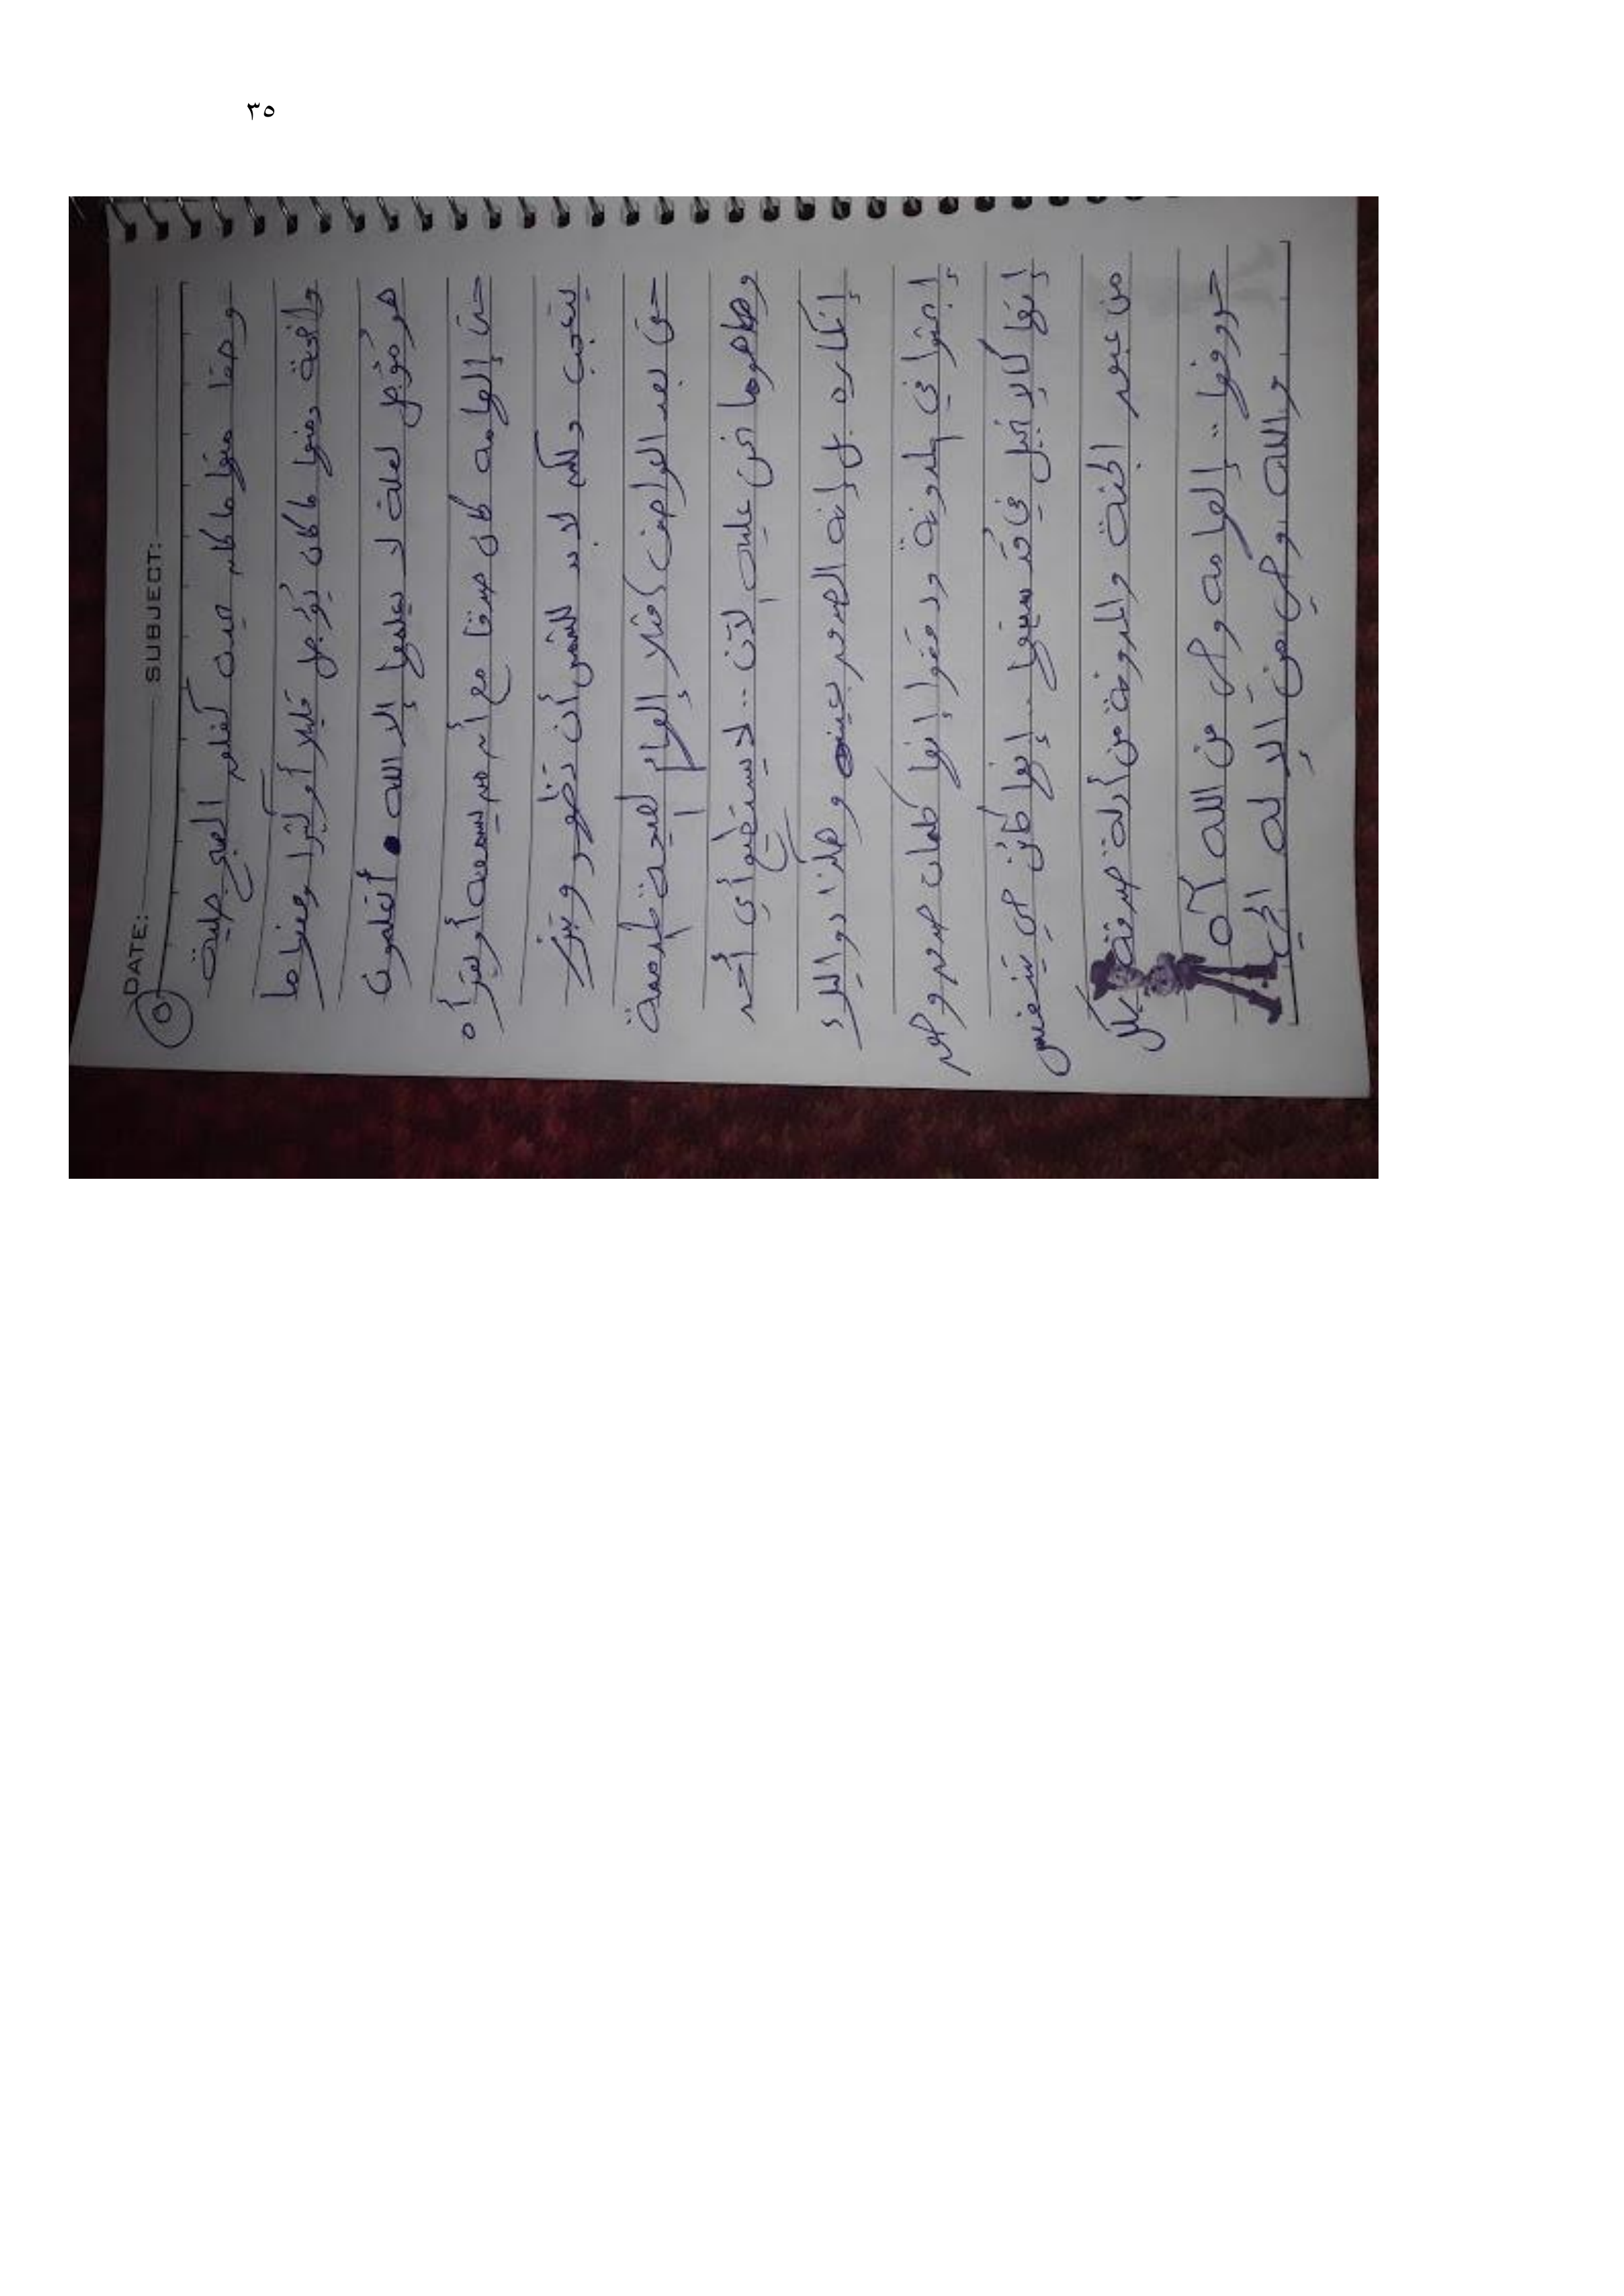 ٣٥
DATE: SUBJECT:
٥
وحقا منها ما كان حيث كفلق الصبح جلية
واضحة ومنها ما كان يؤجل قليلا أو كثيرا ومنها ما
هو مؤجل لعلة لا يعلمها إلا الله أتعلمون
حتى إلهامه كان صدقا مع أم من يسمعه أو يقرأه
يتعجب ولكن لابد للشمس أن تظهر و
حتى بعد العواصف فمثلا إلهام لصيحة
وظاهرها خفي عليه لآن .. لا يستطيع أي أحد
إنكاره بل إنه الصدق بعينه وهكذا دواليك
إبحثوا في المدونة ودققوا إنها كلمات صدق وحق
إنها كالانجيل في قدسيتها .. إنها كائن حي يتنفس
من عبير الجنة والمدونة من أدلة صدقة بكل
حروفها .. إلهامه وحي من الله آه
والله وحي من الإله الحي